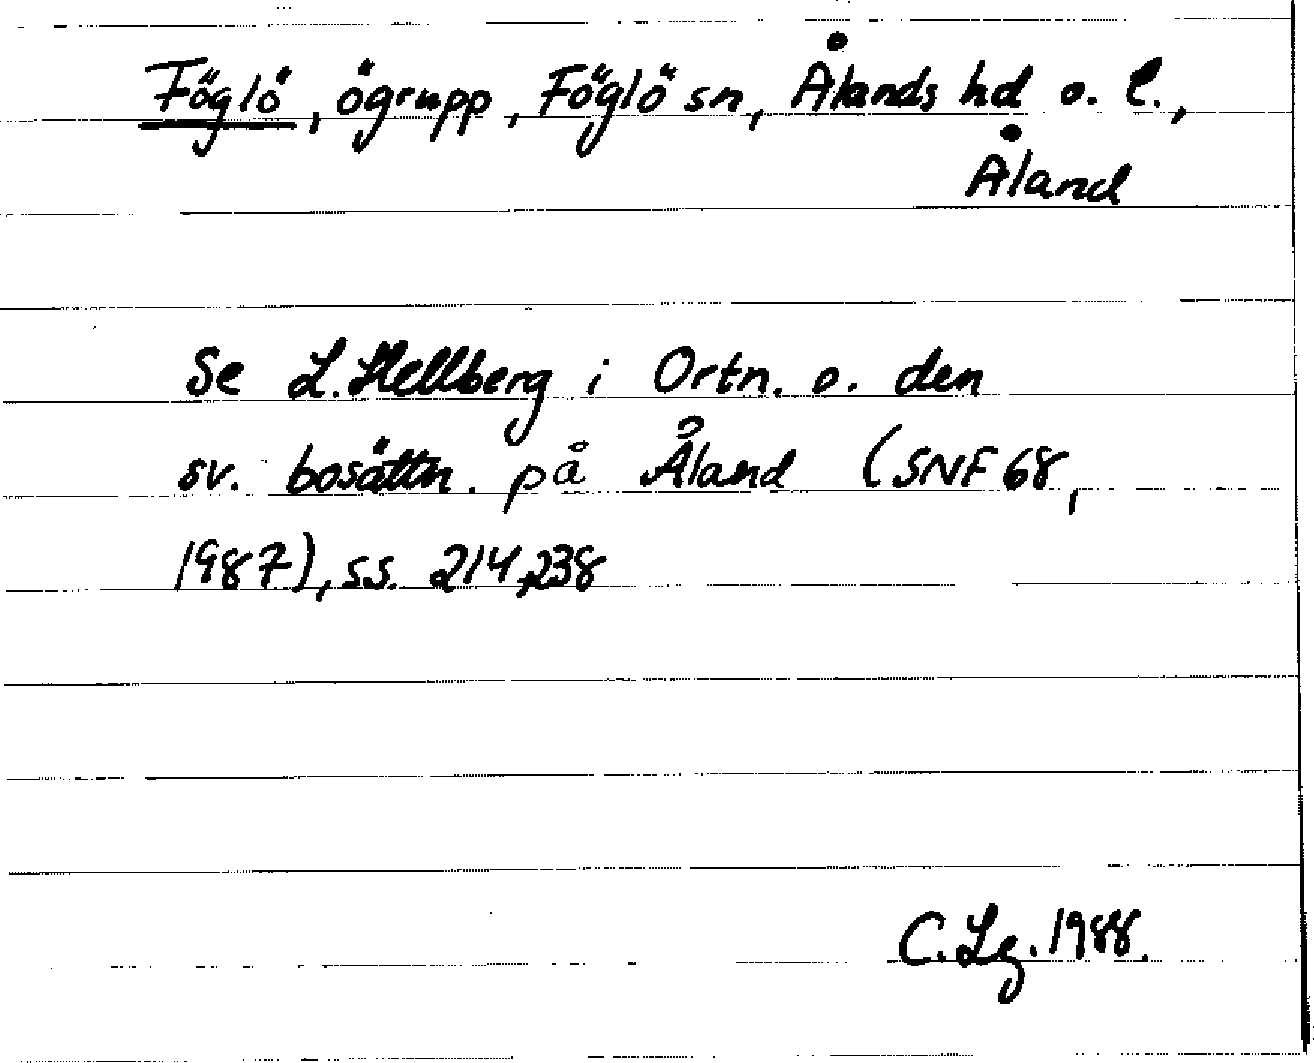 Föglö, ögrupp, Föglö sn, Ålands hd o. l.,
Åland
Se L. Hellberg i Ortn. o. den
sv. bosättn. på Åland (SNF 68,
1987), ss. 214,238
C. Lg. 1988.